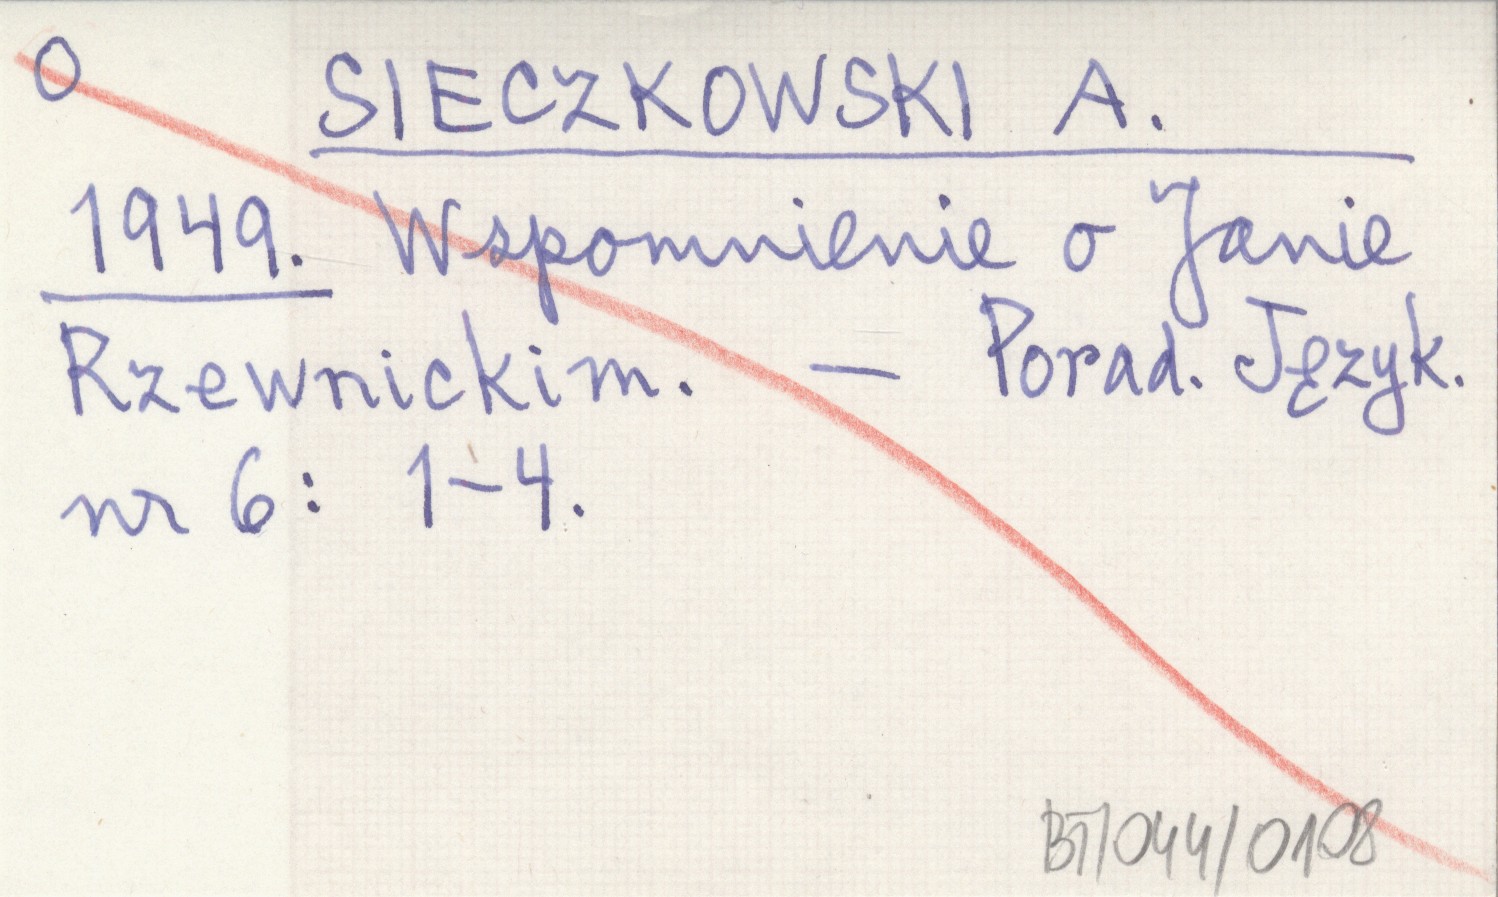 O SIECZKOWSKI A.
1949. Wspomnienie o Janie
Rzewnickim. — Porad. Język.
nr 6: 1–4.
BT/044/0108